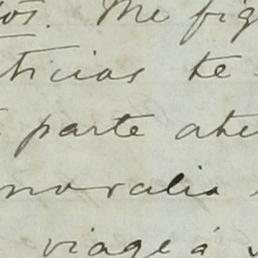 tos. Me fig
ticias te
parte ate
noralia
viage á